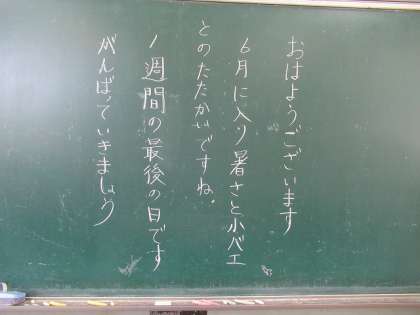 おはようございます
6月に入り暑さと小バエ
とのたたかいですね。
1週間の最後の日です
がんばっていきましょう